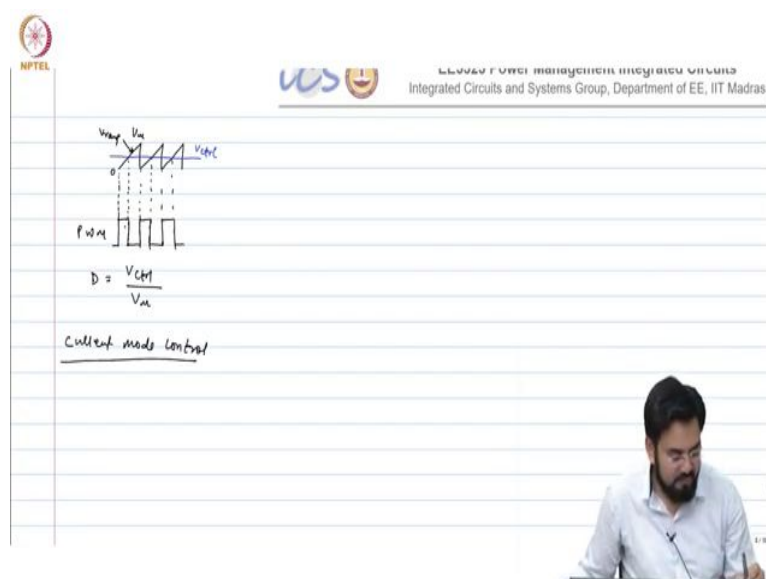 NPTEL
EE5325 Power Management Integrated Circuits
Integrated Circuits and Systems Group, Department of EE, IIT Madras
Vramp Vm
Vctrl
0
PWM
D = Vctrl
Vm
Current mode control